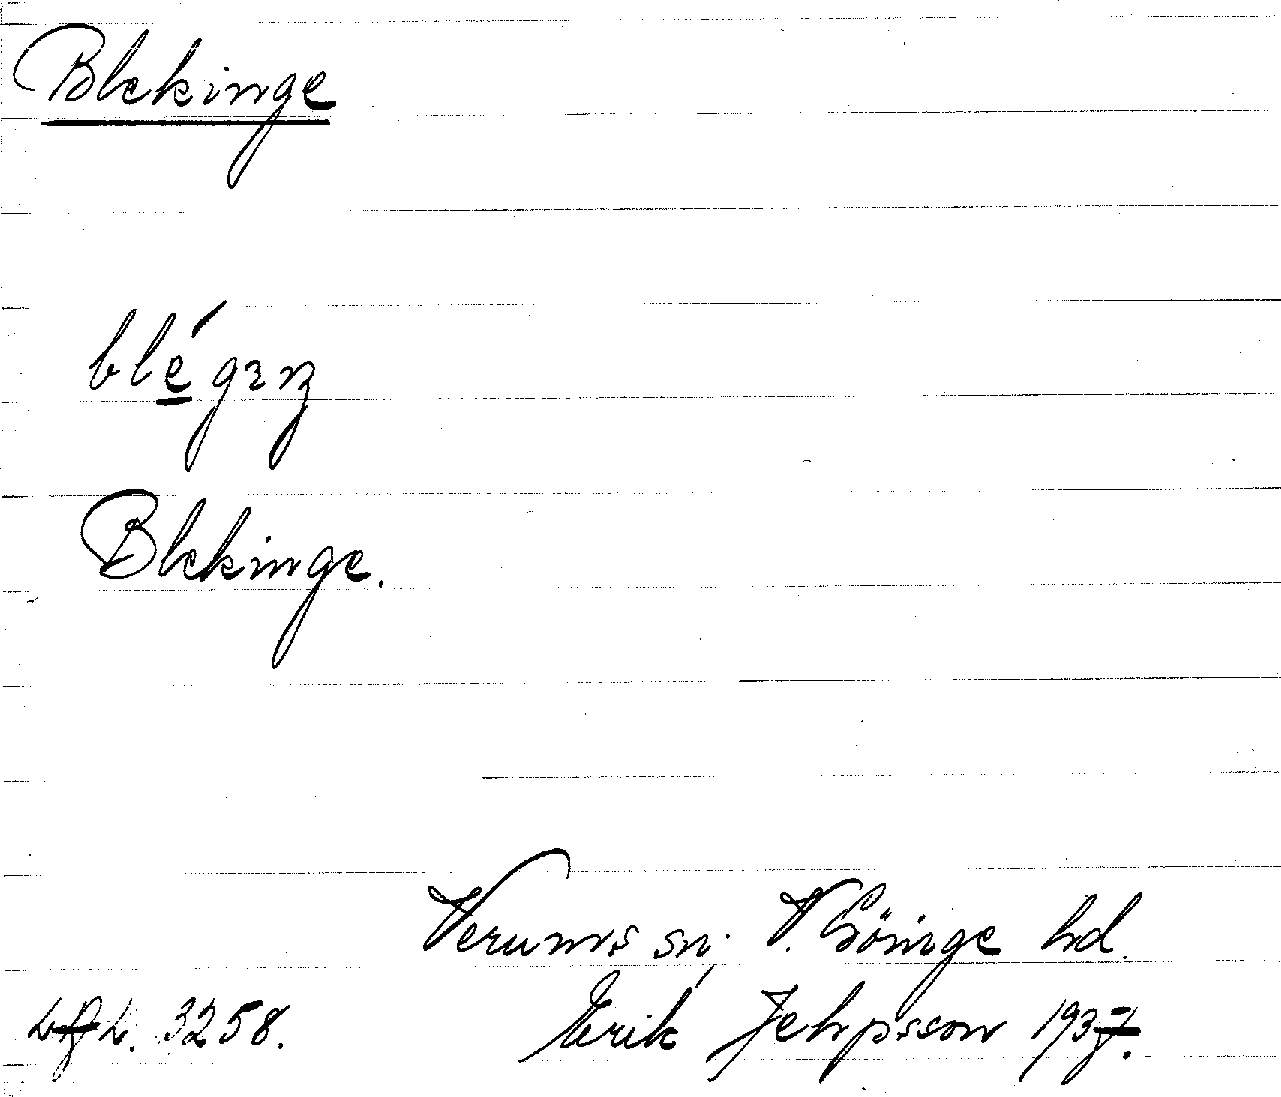 Blekinge
Blekinge.
Verums sn; V. Göinge hd.
3258. Erik Jehpsson 1937.